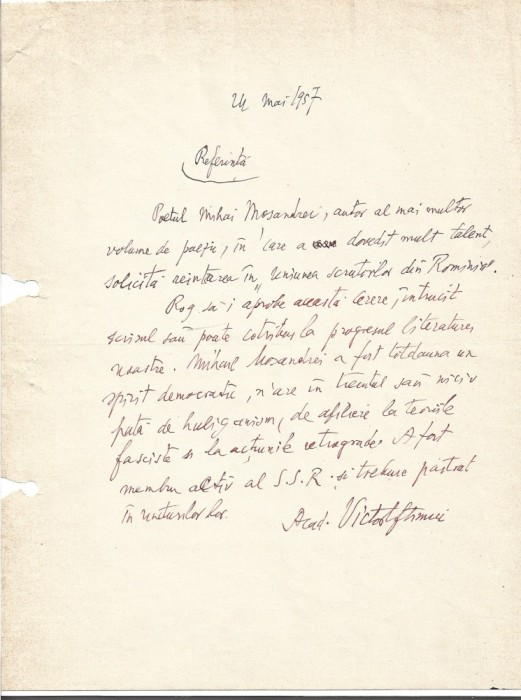 24 mai 1957
Referință
Poetul Mihai Mosandrei, autor al mai multor
volume de poezie, în care a dovedit mult talent,
solicită reintrarea în „Uniunea scriitorilor din Rominia".
Rog să-i aprobe această cerere, întrucît
scrisul său poate contribui la progresul literaturei
noastre. Mihail Mosandrei a fost totdauna un
spirit democratic, n'are în trecutul său nicio
pată de huliganism, de afiliere la teoriile
fasciste și la acțiunile retrograde. A fost
membru activ al S.S.R. și trebuie păstrat
în
Acad. Victor Eftimiu